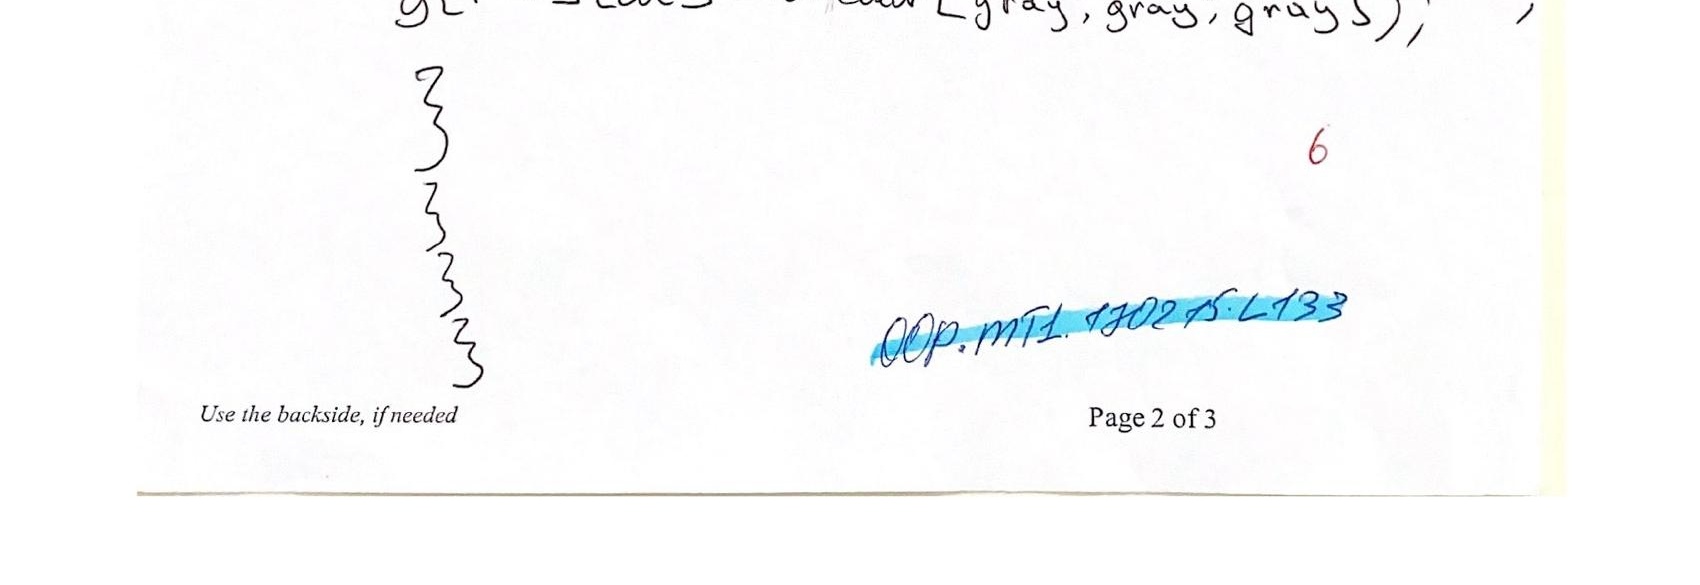 gray, gray, gray});
}
6
}
}
}
OOP.MT1.170215.L133
Use the backside, if needed
Page 2 of 3